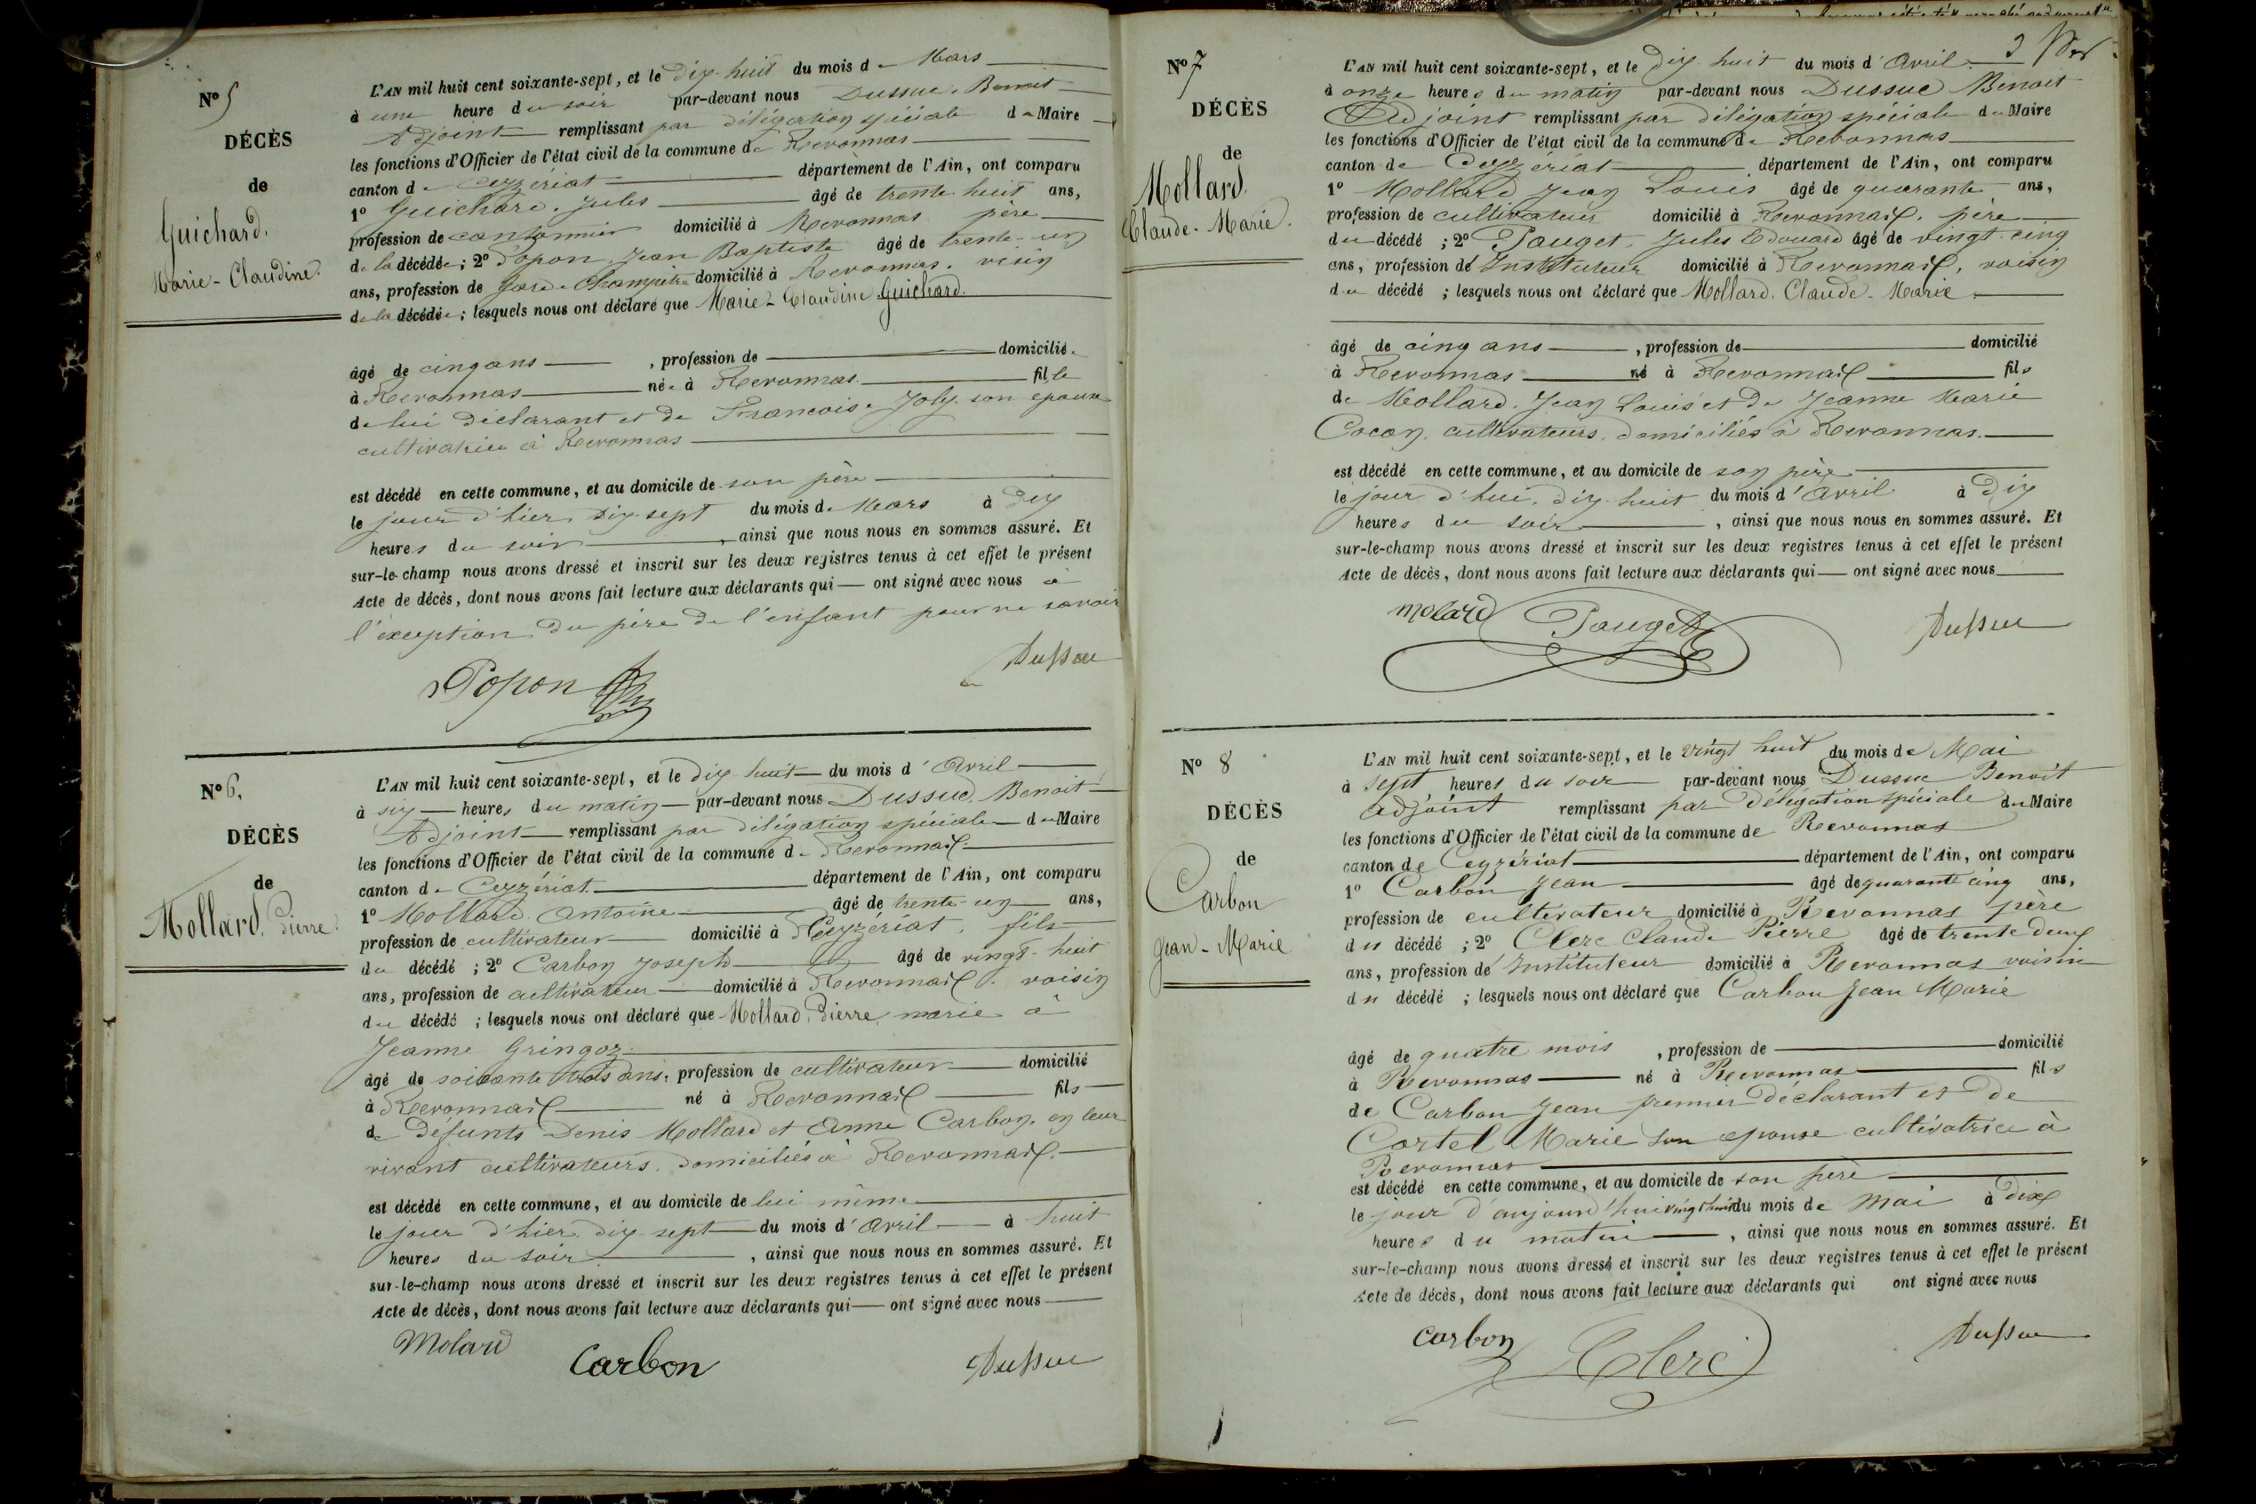 N° 5
DÉCÈS
de
Guichard.
Marie-Claudine.
L'AN mil huit cent soixante-sept, et le dix huit du mois de Mars
à une heure du soir par-devant nous Dussuc, Benoit
Adjoint remplissant par délégation spéciale du Maire
les fonctions d'Officier de l'état civil de la commune de Revonnas
canton de Ceyzériat département de l'Ain, ont comparu
1° Guichard. Jules âgé de trente huit ans,
profession de cantonnier domicilié à Revonnas père
de la décédée; 2° Popon, Jean Baptiste âgé de trente-un
ans, profession de Garde Champêtre domicilié à Revonnas. voisin
de la décédée; lesquels nous ont déclaré que Marie-Claudine Guichard.
âgé de cinq ans, profession de domicilié.
à Revonnas née à Revonnas fille
de lui déclarant et de Francoise Joly son epouse
cultivatrice à Revonnas
est décédé en cette commune, et au domicile de son père
le jour d'hier dix-sept du mois de Mars à dix
heures du soir, ainsi que nous nous en sommes assuré. Et
sur-le-champ nous avons dressé et inscrit sur les deux registres tenus à cet effet le présent
Acte de décès, dont nous avons fait lecture aux déclarants qui ont signé avec nous à
l'exception du père de l'enfant pour ne savoir
Popon Dussuc
N° 6.
DÉCÈS
de
Mollard. Pierre.
L'AN mil huit cent soixante-sept, et le dix huit du mois d'Avril
à six heures du matin par-devant nous Dussuc, Benoit
Adjoint remplissant par délégation spéciale du Maire
les fonctions d'Officier de l'état civil de la commune de Revonnas
canton de Ceyzériat département de l'Ain, ont comparu
1° Mollard. Antoine âgé de trente-un ans,
profession de cultivateur domicilié à Ceyzériat. fils
du décédé; 2° Carbon Joseph âgé de vingt-huit
ans, profession de cultivateur domicilié à Revonnas. voisin
du décédé; lesquels nous ont déclaré que Mollard. Pierre, marie à
Jeanne Gringoz
âgé de soixante trois ans, profession de cultivateur domicilié
à Revonnas né à Revonnas fils
de défunts Denis Mollard et Anne Carbon. en leur
vivant cultivateurs. domiciliés à Revonnas.
est décédé en cette commune, et au domicile de lui même
le jour d'hier dix-sept du mois d'Avril à huit
heures du soir, ainsi que nous nous en sommes assuré. Et
sur-le-champ nous avons dressé et inscrit sur les deux registres tenus à cet effet le présent
Acte de décès, dont nous avons fait lecture aux déclarants qui ont signé avec nous
Molard Carbon Dussuc
N° 7
DÉCÈS
de
Mollard.
Claude-Marie.
L'AN mil huit cent soixante-sept, et le dix huit du mois d'Avril
à onze heures du matin par-devant nous Dussuc Benoit
Adjoint remplissant par délégation spéciale du Maire
les fonctions d'Officier de l'état civil de la commune de Revonnas
canton de Ceyzériat département de l'Ain, ont comparu
1° Mollard Jean Louis âgé de quarante ans,
profession de cultivateur domicilié à Revonnas. père
du décédé; 2° Pauget. Jules Edouard âgé de vingt-cinq
ans, profession de Instituteur domicilié à Revonnas, voisin
du décédé; lesquels nous ont déclaré que Mollard. Claude-Marie
âgé de cinq ans, profession de domicilié
à Revonnas né à Revonnas fils
de Mollard. Jean Louis et de Jeanne Marie
Cocon. cultivateurs. domiciliés à Revonnas.
est décédé en cette commune, et au domicile de son père
le jour d'hui dix-huit du mois d'Avril à dix
heures du soir, ainsi que nous nous en sommes assuré. Et
sur-le-champ nous avons dressé et inscrit sur les deux registres tenus à cet effet le présent
Acte de décès, dont nous avons fait lecture aux déclarants qui ont signé avec nous
molard Pauget Dussuc
N° 8
DÉCÈS
de
Carbon
Jean-Marie
L'AN mil huit cent soixante-sept, et le vingt huit du mois de Mai
à sept heures du soir par-devant nous Dussuc Benoît
adjoint remplissant par délégation spéciale du Maire
les fonctions d'Officier de l'état civil de la commune de Revonnas
canton de Ceyzériat département de l'Ain, ont comparu
1° Carbon Jean âgé de quarante cinq ans,
profession de cultivateur domicilié à Revonnas père
du décédé; 2° Clerc Claude Pierre âgé de trente deux
ans, profession de Instituteur domicilié à Revonnas voisin
du décédé; lesquels nous ont déclaré que Carbon Jean Marie
âgé de quatre mois, profession de domicilié
à Revonnas né à Revonnas fils
de Carbon Jean premier déclarant et de
Cortel Marie son epouse cultivatrice à
Revonnas
est décédé en cette commune, et au domicile de son père
le jour d'aujourd'hui vingt huit du mois de Mai à dix
heures du matin, ainsi que nous nous en sommes assuré. Et
sur-le-champ nous avons dressé et inscrit sur les deux registres tenus à cet effet le présent
Acte de décès, dont nous avons fait lecture aux déclarants qui ont signé avec nous
carbon Clerc Dussuc